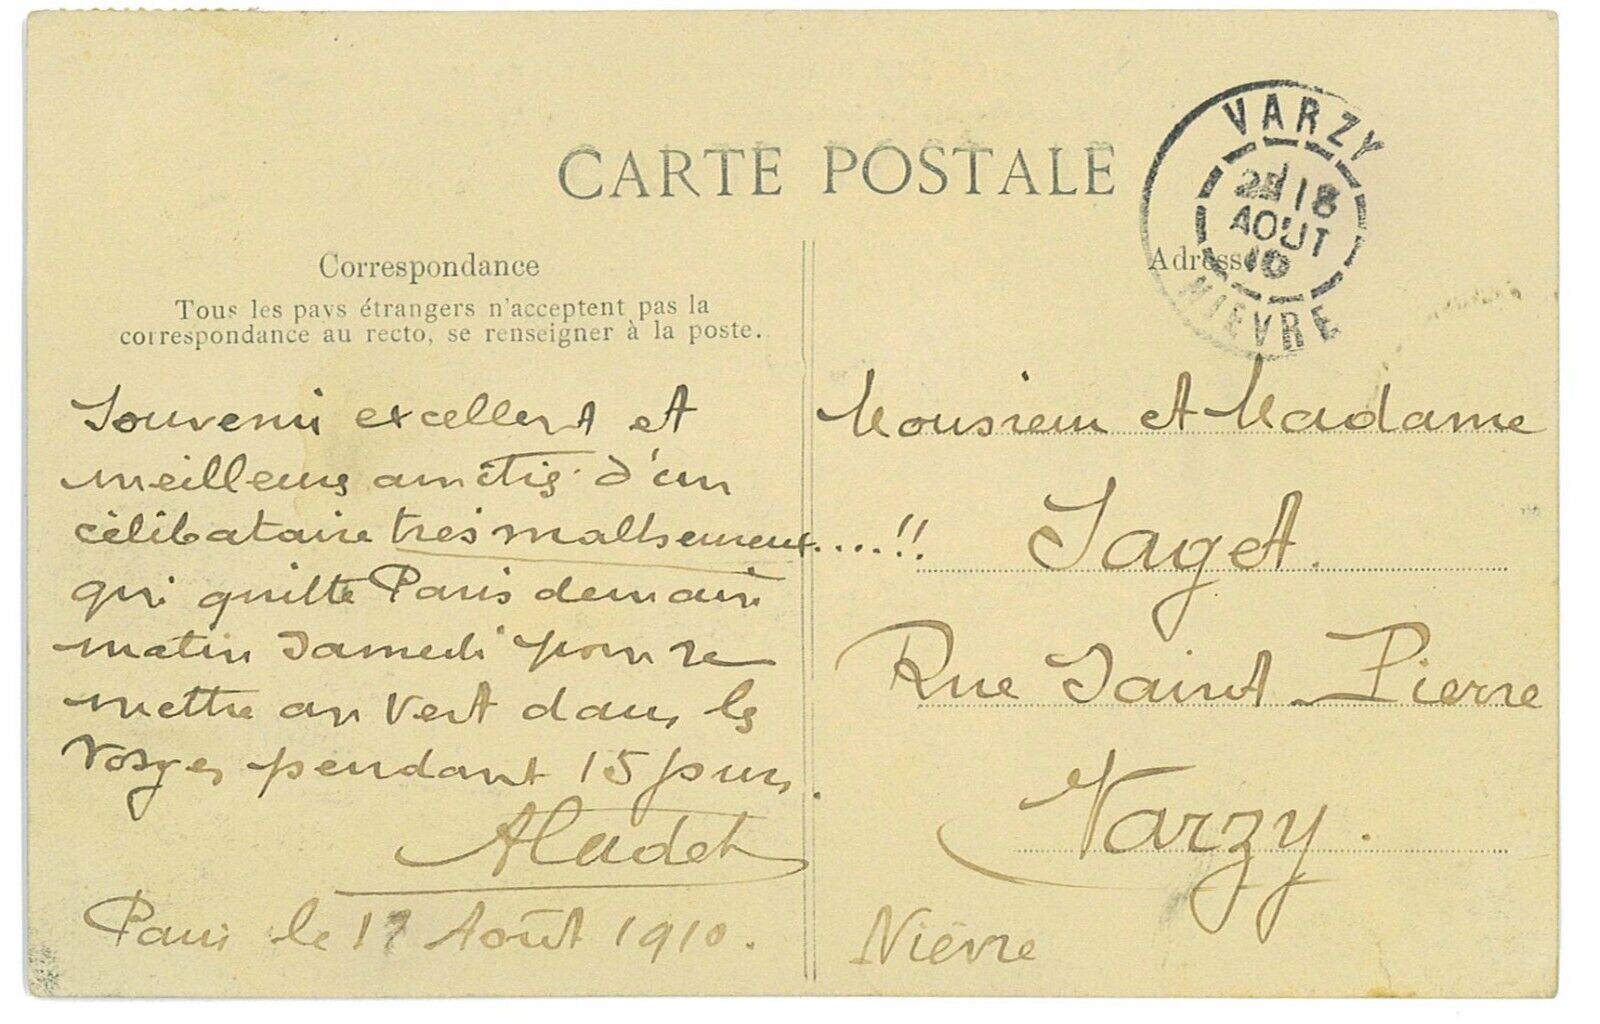 CARTE POSTALE
VARZY
18
AOUT
10
NIEVRE
Correspondance
Tous les pays étrangers n'acceptent pas la
correspondance au recto, se renseigner à la poste.
Adresse
Souvenir excellent et
meilleurs amitiés d'un
célibataire très malheureux....!!
qui quitte Paris demain
matin Samedi pour se
mettre au Vert dans les
Vosges pendant 15 jours.
ACadet
Paris le 17 Août 1910.
Monsieur et Madame
Saget.
Rue Saint-Pierre
Varzy.
Nièvre